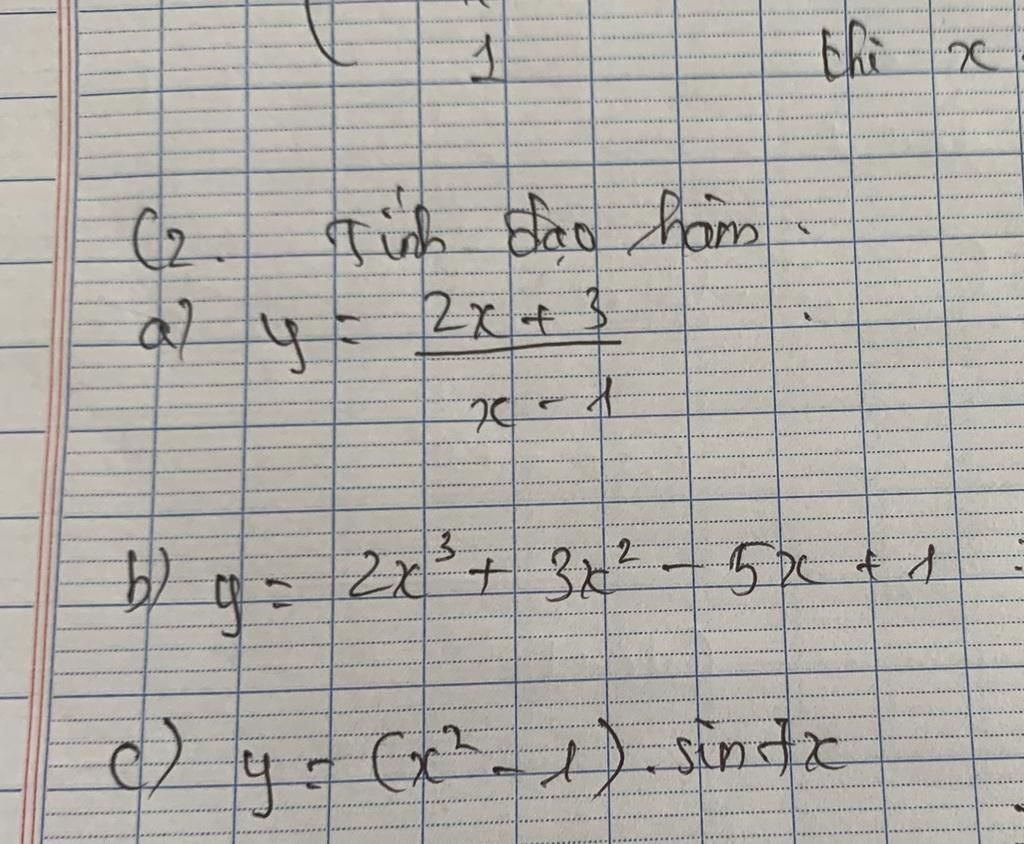 1 thì x
C2. Tính đạo hàm:
a) y = \frac{2x + 3}{x - 1}
b) y = 2x³ + 3x² - 5x + 1
c) y = (x² - 1). sin7x